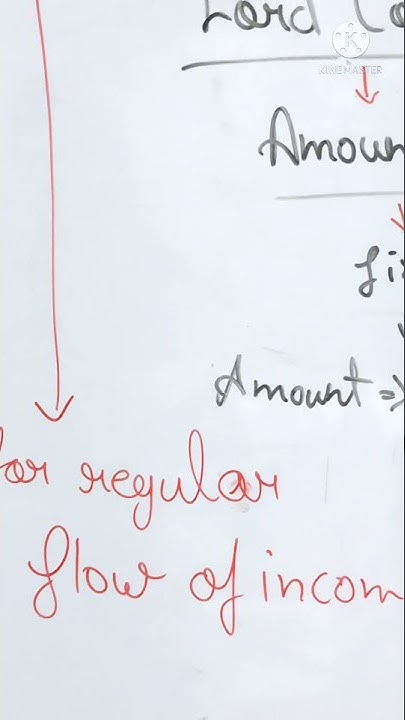 Lord
KINEMASTER
Amoun
fi
Amount =>
for regular
flow of incom